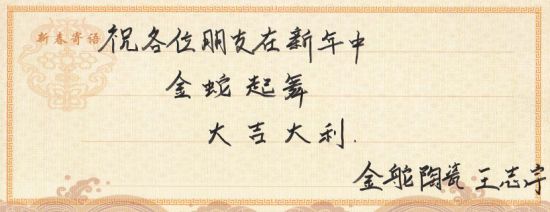 新春寄语
祝各位朋友在新年中
金蛇起舞
大吉大利.
金舵陶瓷 王志宇